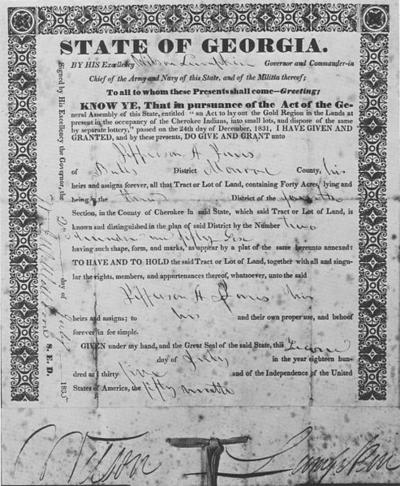 STATE OF GEORGIA.
BY HIS Excellency Wilson Lumpkin Governor and Commander-in
Chief of the Army and Navy of this State, and of the Militia thereof;
To all to whom these Presents shall come—Greeting;
KNOW YE, That in pursuance of the Act of the Ge-
neral Assembly of this State, entitled "an Act to lay out the Gold Region in the Lands at
present in the occupancy of the Cherokee Indians, into small lots, and dispose of the same
by separate lottery," passed on the 24th day of December, 1831, I HAVE GIVEN AND
GRANTED, and by these presents, DO GIVE AND GRANT unto
Jefferson H. Jones
of District Monroe County, his
heirs and assigns forever, all that Tract or Lot of Land, containing Forty Acres, lying and
being in the Third District of the
Section, in the County of Cherokee in said State, which said Tract or Lot of Land, is
known and distinguished in the plan of said District by the Number two
hundred and
having such shape, form, and marks, as appear by a plat of the same hereunto annexed:
TO HAVE AND TO HOLD the said Tract or Lot of Land, together with all and singu-
lar the rights, members, and appertenances thereof, whatsoever, unto the said
Jefferson H. Jones his
heirs and assigns; to his and their own proper use, and behoof
forever in fee simple.
GIVEN under my hand, and the Great Seal of the said State, this
day of July in the year eighteen hun-
dred and thirty five and of the Independence of the United
States of America, the fifty ninth
Signed by His Excellency the Governor, the day of July 1835
S. E. D.
Wilson Lumpkin